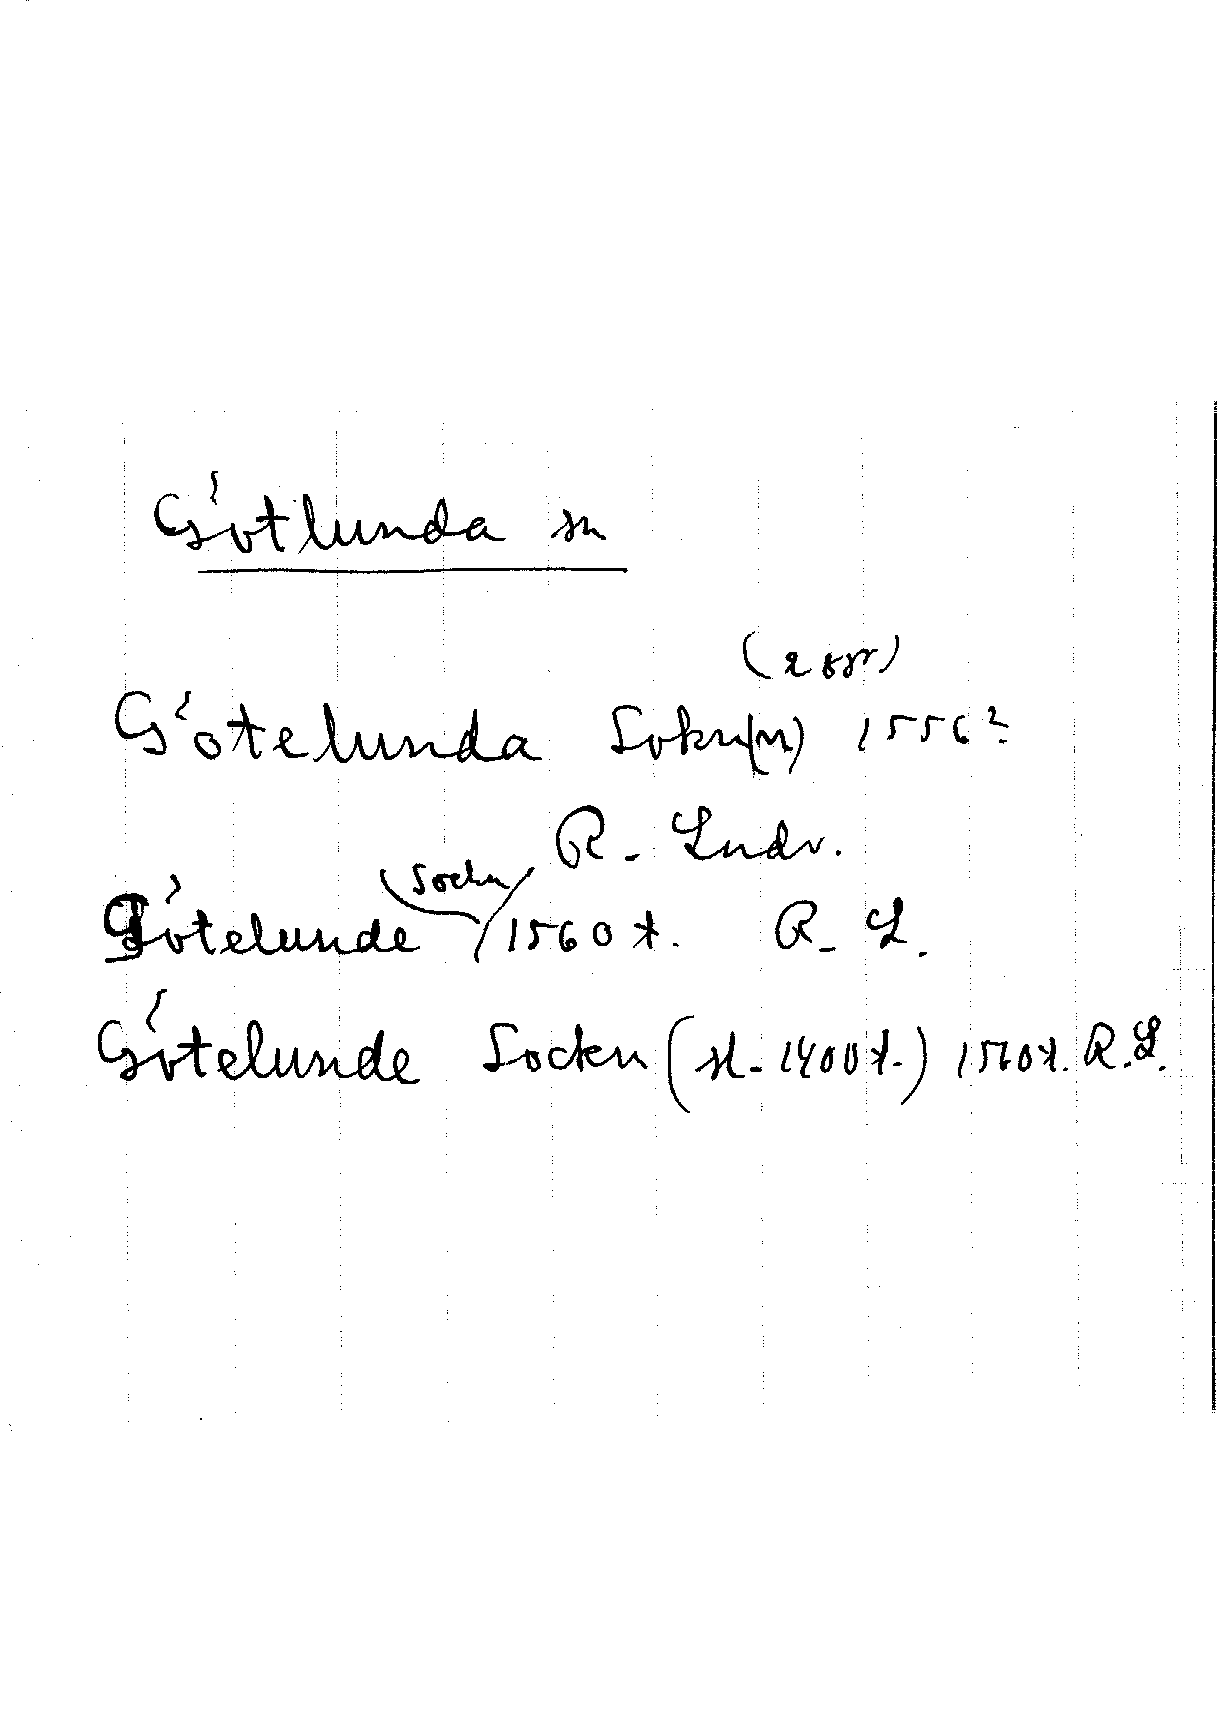 Götlunda sn
(2 ggr)
Götelunda Sokn(n) 1556?
R. Lndv.
Götelunde Sockn 1560 t. R. L.
Götelunde Sockn (sl. 1400 t.) 1560 t. R. L.